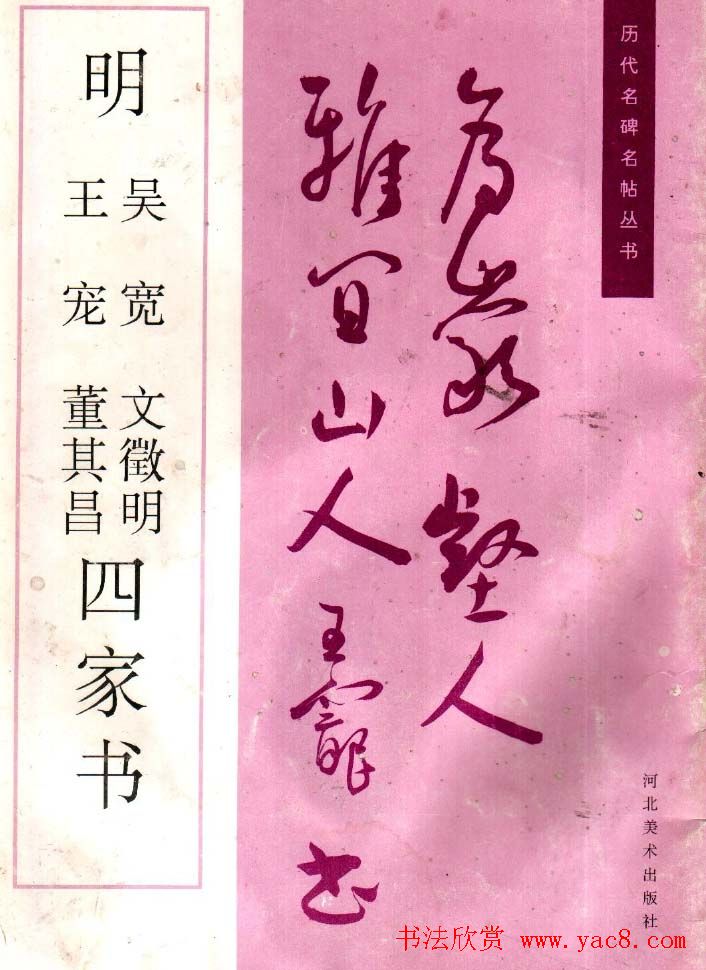 历代名碑名帖丛书
為巖壑人
雅宜山人王寵書
明
吴宽 文徵明
王宠 董其昌
四家书
河北美术出版社
书法欣赏 www.yac8.com